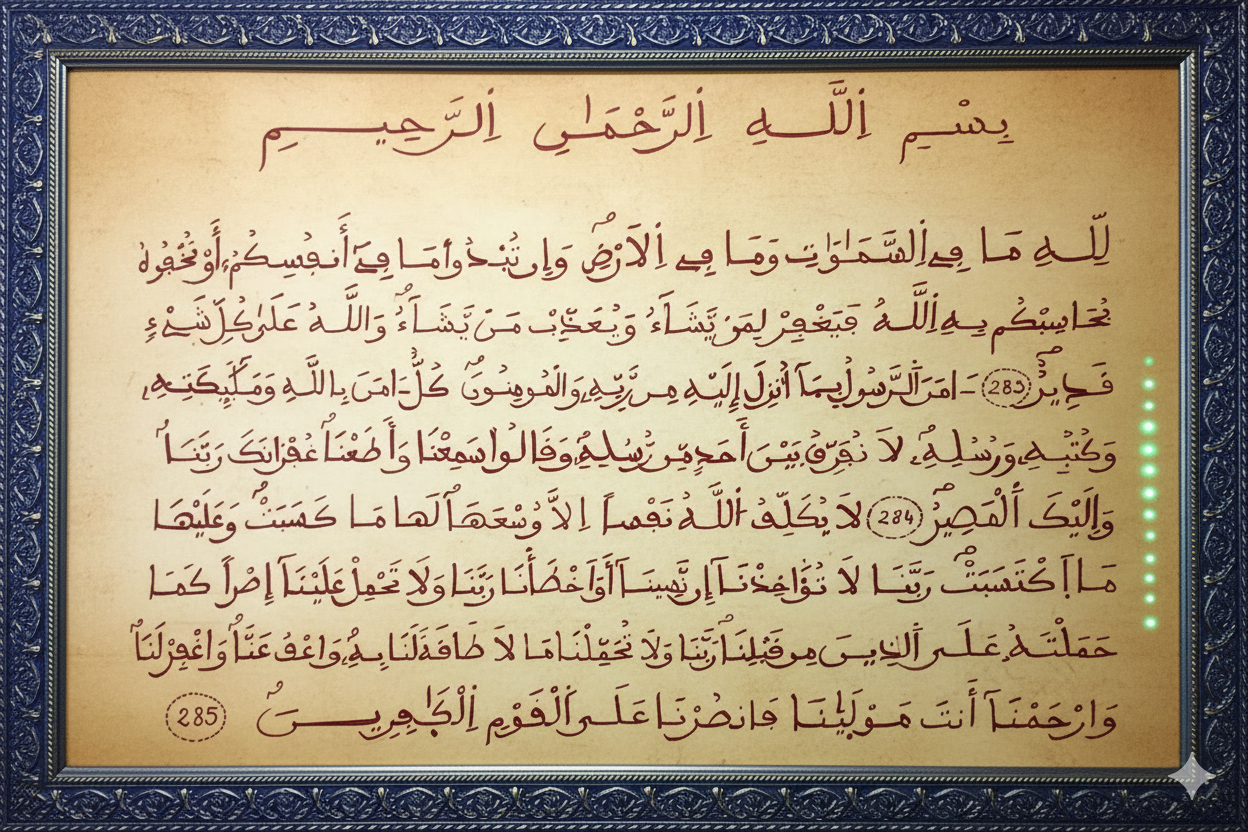 بِسْمِ اِللَّهِ اِلرَّحْمَٰنِ اِلرَّحِيمِ
لِّلهِ مَا فِے اِلسَّمَٰوَٰتِ وَمَا فِے اِلَارْضِۖ وَإِن تُبْدُواْ مَا فِےٓ أَنفُسِكُمُۥٓ أَوْ تُخْفُوهُ
يُحَاسِبْكُم بِهِ اِللَّهُ فَيَغْفِرْ لِمَنْ يَّشَآءُ وَيُعَذِّبْ مَنْ يَّشَآءُۖ وَاللَّهُ عَلَىٰ كُلِّ شَےْءٖ
قَدِيرٌۖ 283 ءَامَنَ اَلرَّسُولُ بِمَآ أُنزِلَ إِلَيْهِ مِن رَّبِّهِۦ وَالْمُومِنُونَۖ كُلٌّ ءَامَنَ بِاللَّهِ وَمَلَٰٓئِكَتِهِۦ
وَكُتُبِهِۦ وَرُسُلِهِۦۖ لَا نُفَرِّقُ بَيْنَ أَحَدٖ مِّن رُّسُلِهِۦۖ وَقَالُواْ سَمِعْنَا وَأَطَعْنَاۖ غُفْرَانَكَ رَبَّنَاۖ
وَإِلَيْكَ اَلْمَصِيرُۖ 284 لَا يُكَلِّفُ اُللَّهُ نَفْساً اِلَّا وُسْعَهَاۖ لَهَا مَا كَسَبَتْۖ وَعَلَيْهَا
مَا اَكْتَسَبَتْۖ رَبَّنَا لَا تُؤَاخِذْنَآ إِن نَّسِينَآ أَوَ اَخْطَأْنَا رَبَّنَا وَلَا تَحْمِلْ عَلَيْنَآ إِصْراً كَمَا
حَمَلْتَهُۥ عَلَى اَلذِينَ مِن قَبْلِنَاۖ رَبَّنَا وَلَا تُحَمِّلْنَا مَا لَا طَاقَةَ لَنَا بِهِۦۖ وَاعْفُ عَنَّاۖ وَاغْفِرْ لَنَاۖ
وَارْحَمْنَآ أَنتَ مَوْلَيٰنَا فَانصُرْنَا عَلَى اَلْقَوْمِ اِلْكَٰفِرِينَۖ 285